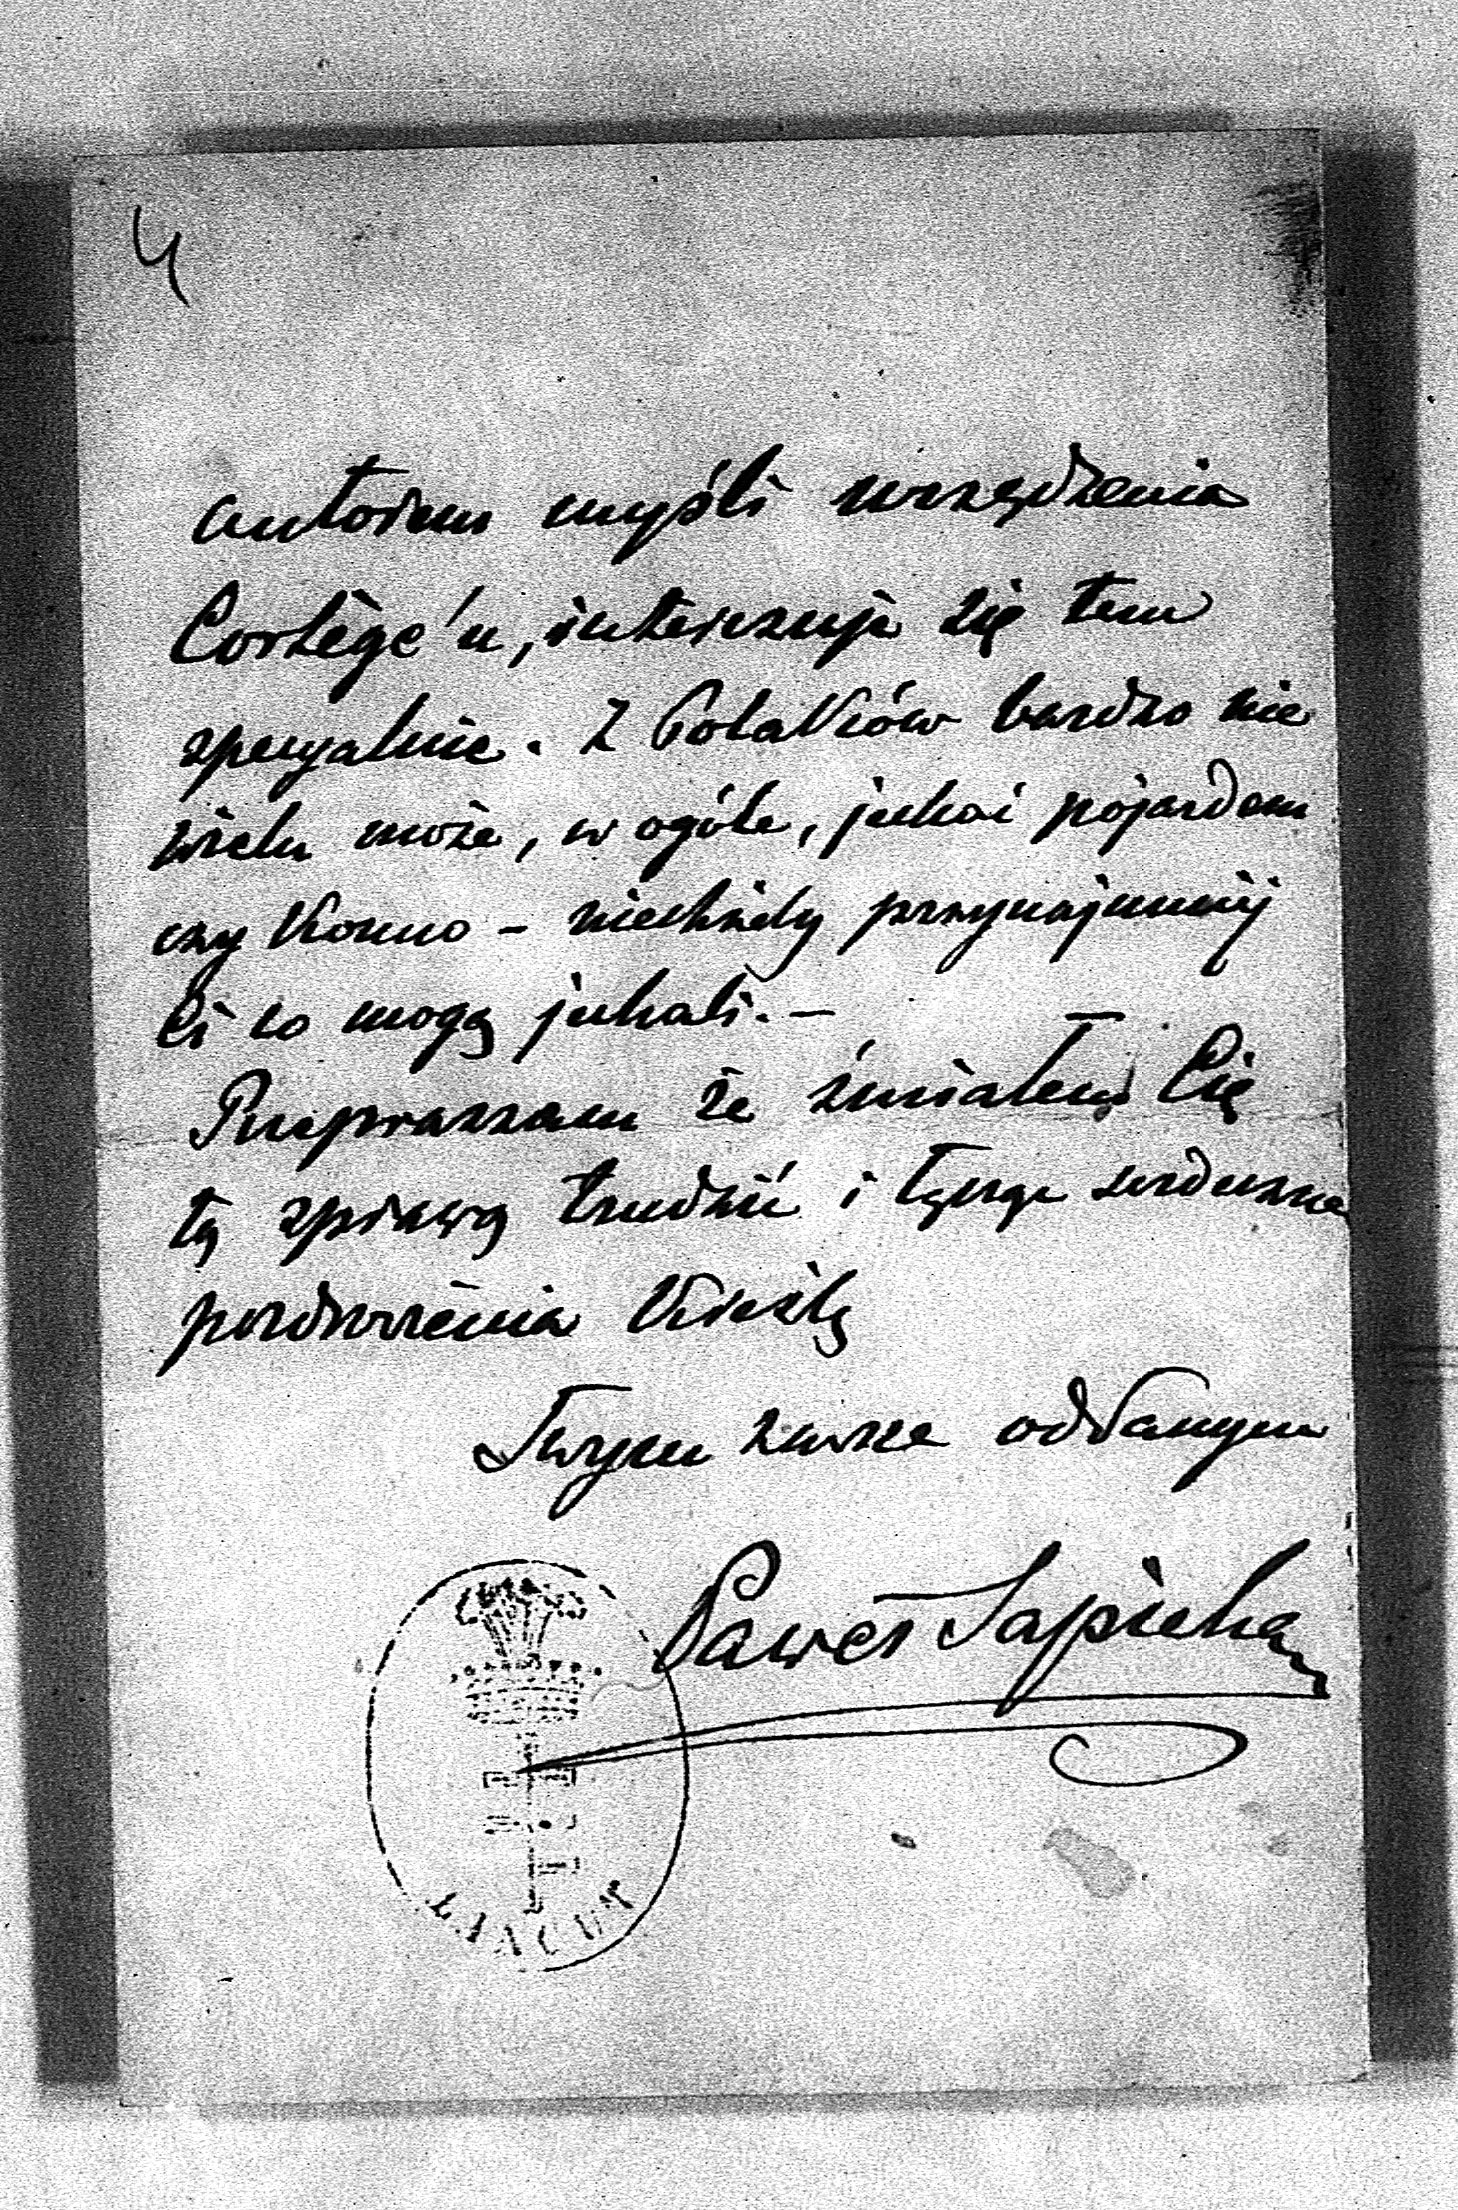 4
autorem myśli urządzenia
Cortège'u, interesuje się tem
specyalnie. Z Polaków bardzo nie
wielu może, w ogóle, jechać pojazdem
czy konno – niechżeby przynajmniej
Ci co mogą jechali. –
Przepraszam że śmiałem Cię
tą sprawą trudzić i łączę serdeczne
pozdrowienia
Twym zawsze oddanym
Paweł Sapieha
ŁAŃCUT